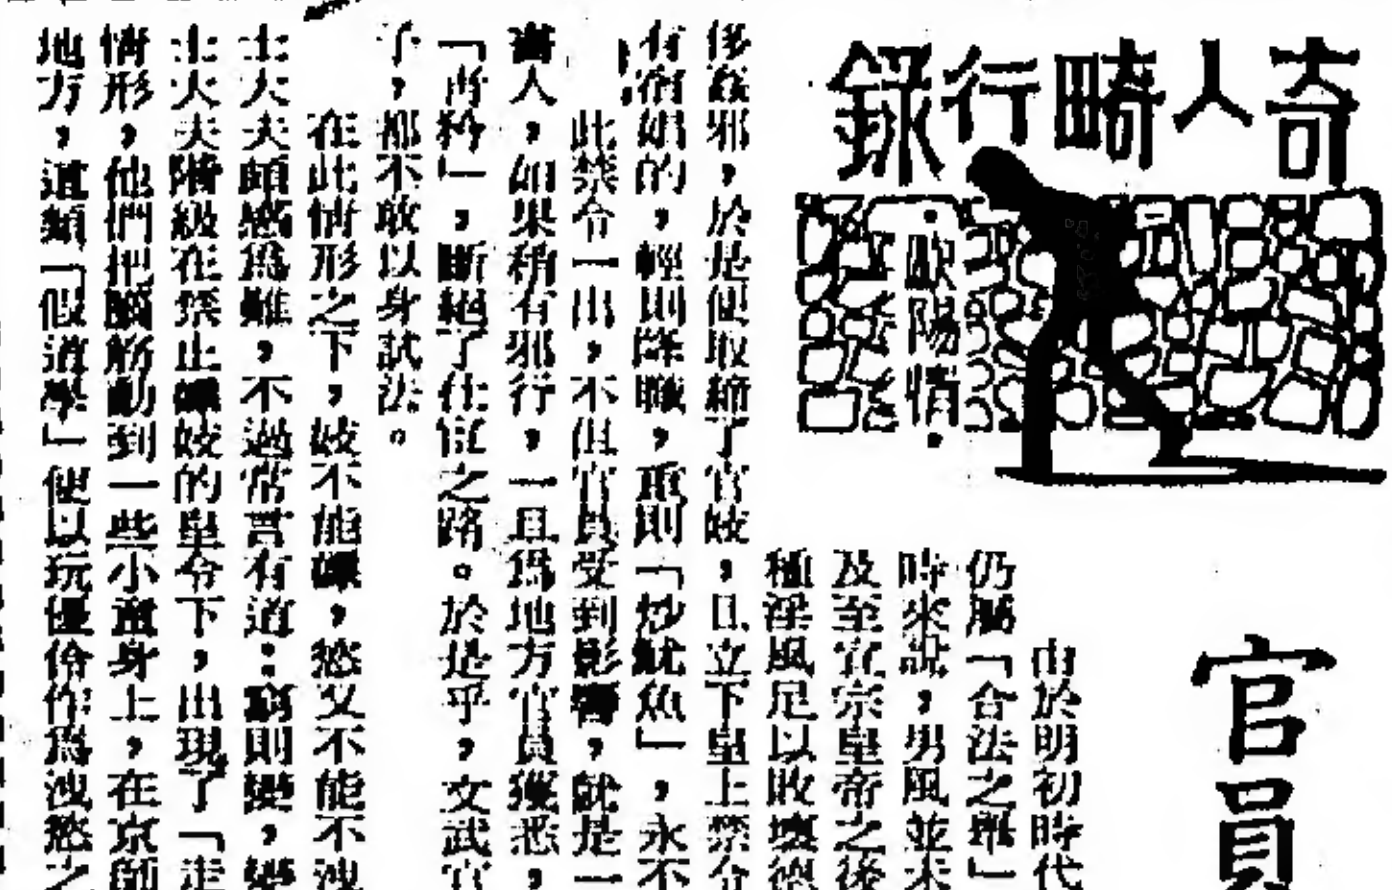 奇人畸行錄
·歐陽情·
官員
由於明初時代
仍屬「合法之舉」
時來說，男風並未
及至宣宗皇帝之後
種淫風足以敗壞德
侈姦邪，於是便取締了官妓，且立下皇上禁令
有宿娼的，輕則降職，重則「炒魷魚」，永不
此禁令一出，不但官員受到影響，就是一
書人，如果稍有邪行，一旦為地方官員獲悉，
「青衿」，斷絕了仕宦之路。於是乎，文武官
子，都不敢以身試法。
在此情形之下，妓不能嫖，慾又不能不洩
士大夫頗感為難，不過常言有道：窮則變，變
士大夫階級在禁止嫖妓的皇令下，出現了「走
情形，他們把腦筋動到一些小童身上，在京師
地方，道類「假道學」便以玩優伶作為洩慾之